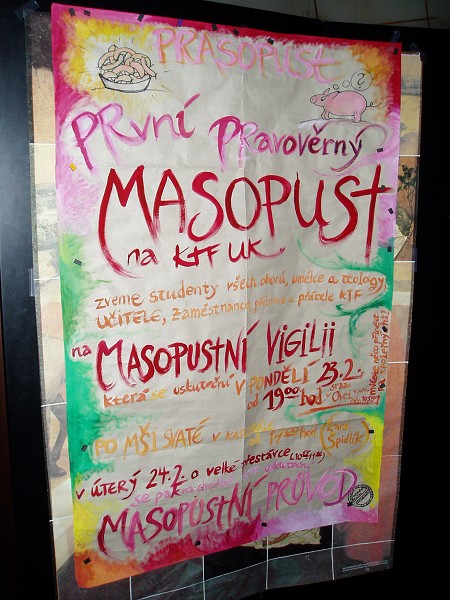 PRASOPUST
?
PRVNÍ PRAVOVĚRNÝ
MASOPUST
na KTF UK
zveme studenty všech oborů, umělce a teology
UČITELE, zaměstnance, příznivce a přátele KTF
na MASOPUSTNÍ VIGILII
která se uskuteční V PONDĚLÍ 23.2.
od 19:00 hod
PO MŠI SVATÉ v
V ÚTERÝ 24.2. o velké přestávce
se pak
MASOPUSTNÍ PRŮVOD